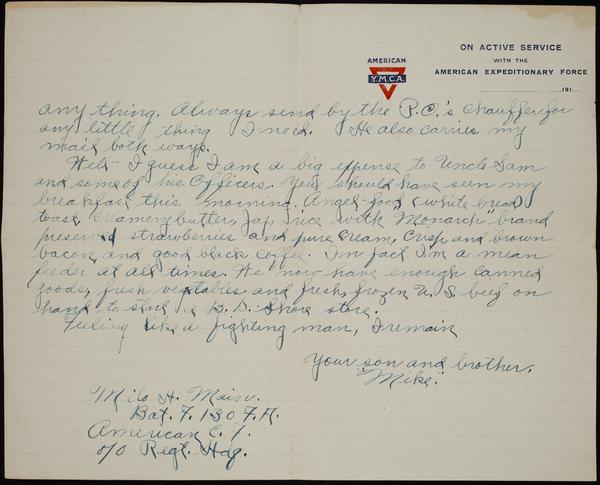 AMERICAN
Y.M.C.A.
ON ACTIVE SERVICE
WITH THE
AMERICAN EXPEDITIONARY FORCE
191
any thing. Always send by the P.C.'s Chauffer for
any little thing I need. He also carries my
mail both ways.
Well I guess I am a big expense to Uncle Sam
and some of his Officers. You should have seen my
breakfast this morning. Angel food (white bread)
toast, creamery butter, Jap rice with "Monarch" brand
preserved strawberries and pure cream, crisp and brown
bacon, and good black coffee. In fact I'm a mean
feeder at all times. We now have enough canned
goods, fresh vegetables and fresh, frozen U.S. beef on
hand to start a Shore store.
Feeling like a fighting man, I remain
Your son and brother,
"Mike."
Milo H.
Bat. F. 130 F.A.
American E. F.
o/o Regt. Hdq.